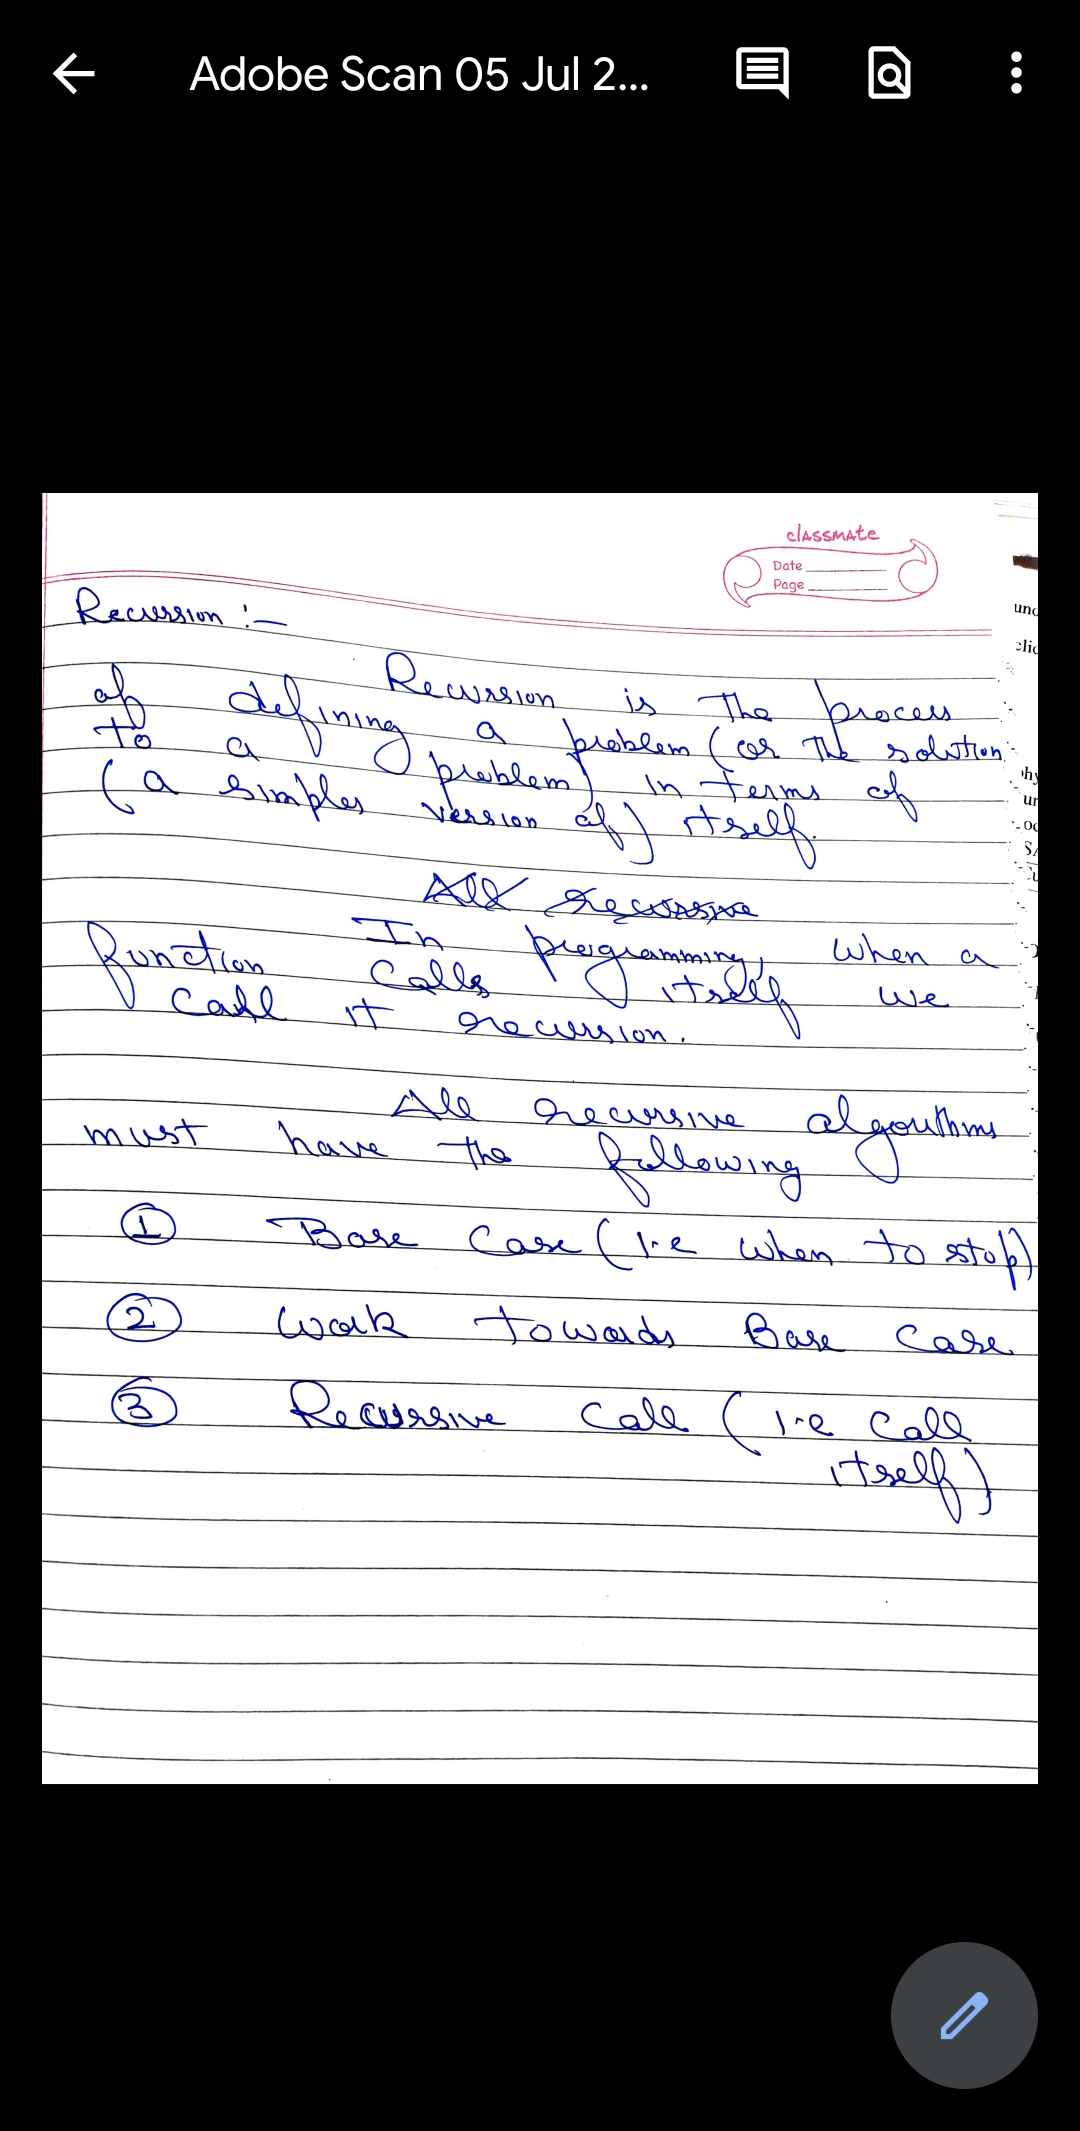 Adobe Scan 05 Jul 2...
classmate
Date
Page
Recursion :-
Recursion is the process
of defining a problem (or the solution
to a problem) in terms of
(a simpler version of) itself.
All recursive
In programming, when a
function calls itself we
call it recursion.
All recursive algorithms
must have the following
1 Base Case (i.e when to stop)
2 Work towards Base Case
3 Recursive Call (i.e call
itself)